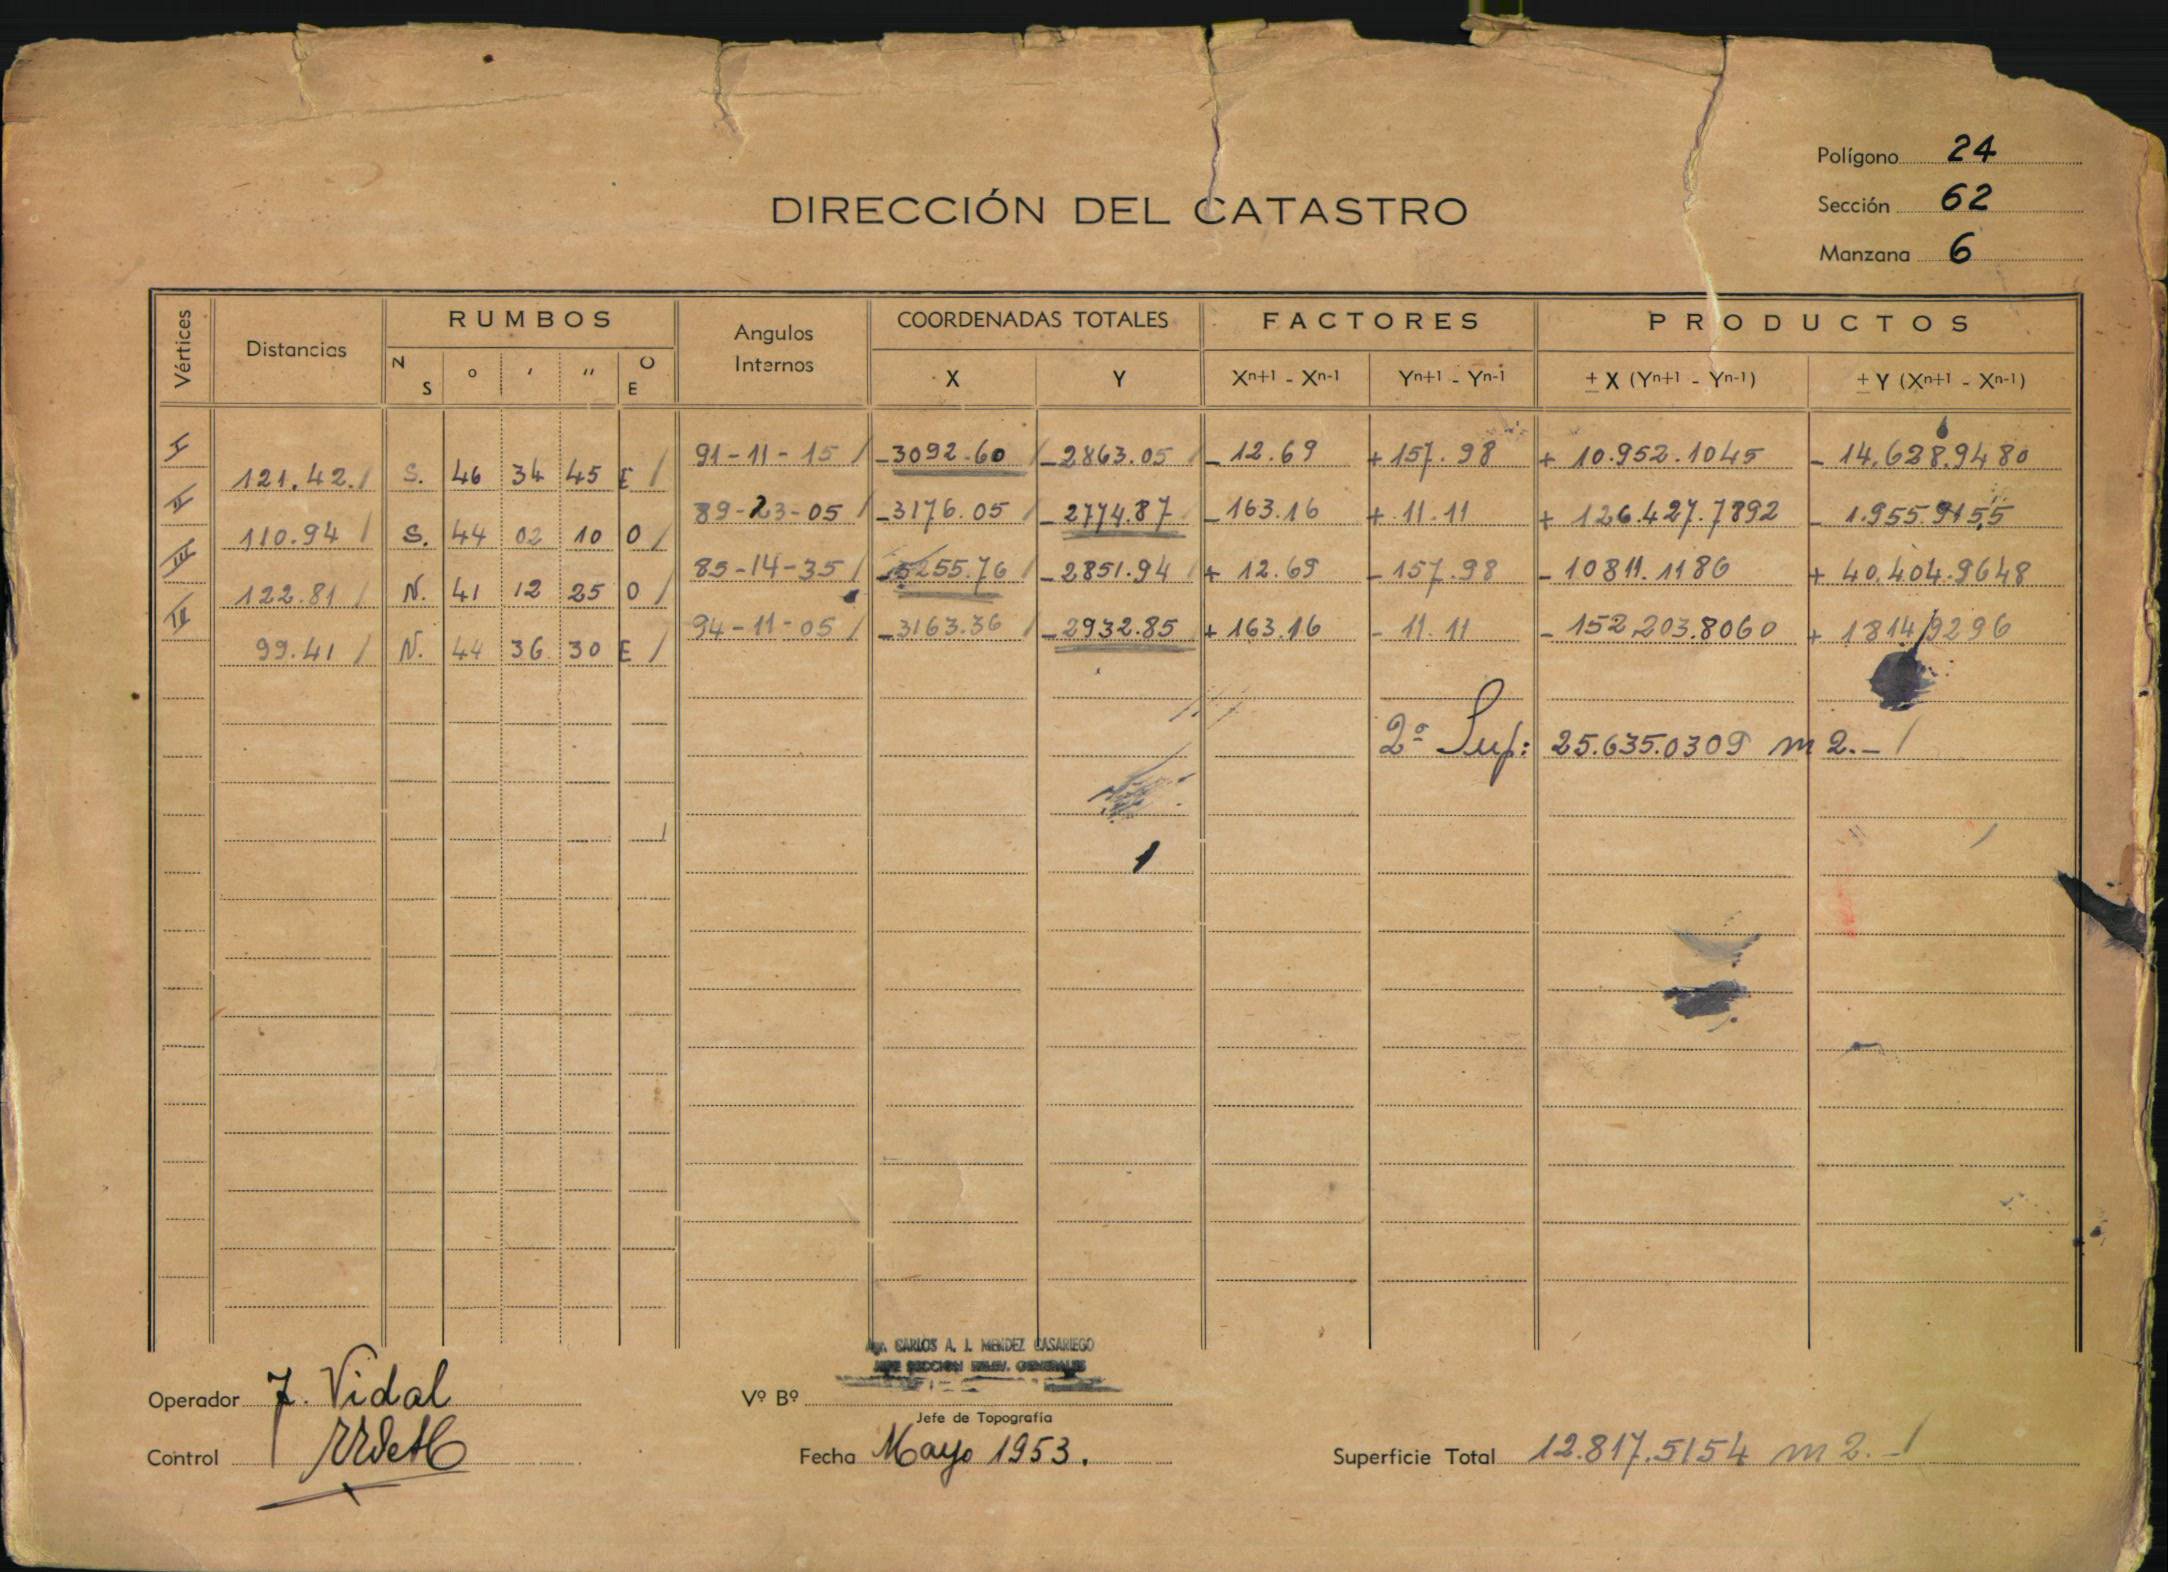 Polígono 24
Sección 62
Manzana 6
DIRECCIÓN DEL CATASTRO
Vértices Distancias RUMBOS Angulos Internos COORDENADAS TOTALES FACTORES PRODUCTOS
N S ° ' '' O E X Y Xn+1 - Xn-1 Yn+1 - Yn-1 ± X (Yn+1 - Yn-1) ± Y (Xn+1 - Xn-1)
I 91-11-15 -3092.60 -2863.05 -12.69 +157.98 + 10.952.1045 - 14.628.9480
121.42 S. 46 34 45 E
II 89-23-05 -3176.05 -2774.87 -163.16 +11.11 + 126.427.7892 - 1.955.9155
110.94 S. 44 02 10 O
III 85-14-35 -3255.76 -2851.94 + 12.69 -157.98 -10811.1186 + 40.404.9648
122.81 N. 41 12 25 O
IV 94-11-05 -3163.36 -2932.85 + 163.16 - 11.11 - 152.203.8060 + 1814.9296
99.41 N. 44 36 30 E
2ª Sup: 25.635.0309 m2.-
Agr. CARLOS A. J. MENDEZ CASARIEGO
JEFE SECCION RELEV. GENERALES
Operador J. Vidal Vº Bº
Jefe de Topografía
Control Fecha Mayo 1953. Superficie Total 12.817.5154 m2.-